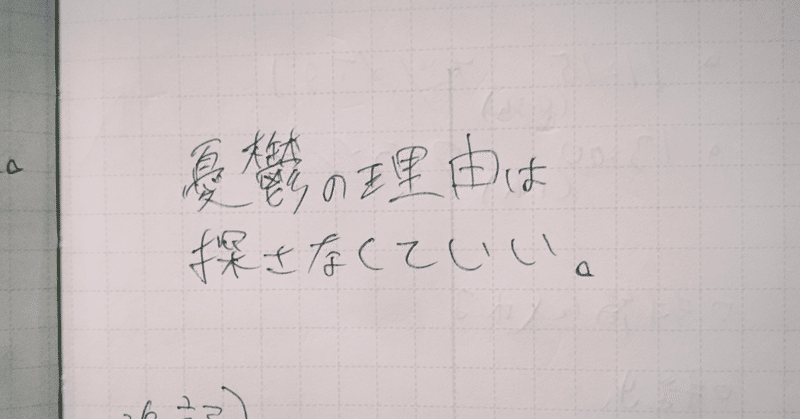 憂鬱の理由は
探さなくていい。